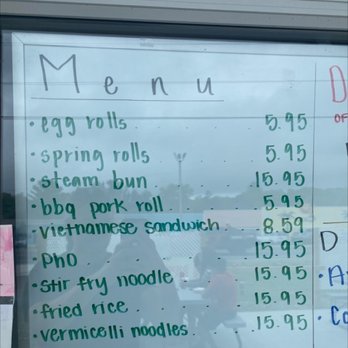 Menu
• egg rolls . . . . 5.95
• spring rolls . . . 5.95
• steam bun . . . . 15.95
• bbq pork roll . . . 5.95
• vietnamese sandwich . . 8.59
• Pho . . . . . . 15.95
• stir fry noodle . . . 15.95
• fried rice . . . . 15.95
• vermicelli noodles . . . 15.95